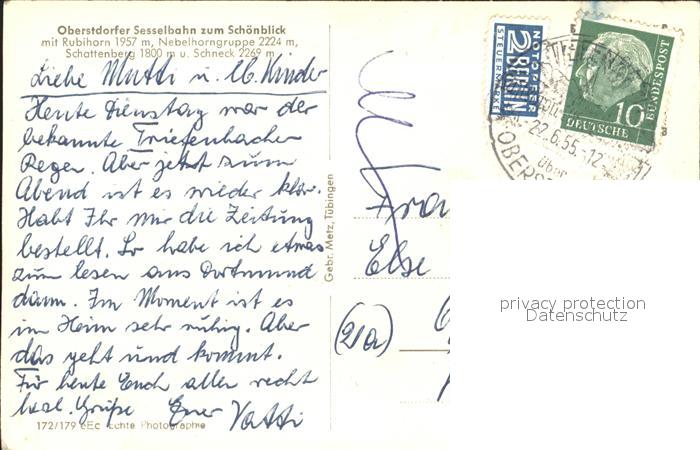 Oberstdorfer Sesselbahn zum Schönblick
mit Rubihorn 1957 m, Nebelhorngruppe 2224 m,
Schattenberg 1800 m u. Schneck 2269 m
Liebe Mutti u. lb. Kinder
Heute Dienstag war der
bekannte Tiefenbacher
Regen. Aber jetzt zum
Abend ist es wieder klar.
Habt Ihr mir die Zeitung
bestellt. So habe ich etwas
zum lesen aus Dortmund
dann. Im Moment ist es
im Heim sehr ruhig. Aber
das geht und kommt.
Für heute Euch allen recht
herzl. Grüße Euer Vatti
172/179 Echte Photographie
Gebr. Metz, Tübingen
NOTOPFER
2 BERLIN
STEUERMARKE
10
DEUTSCHE
BUNDESPOST
22.6.55.-12
über
OBERS
Frau
Else
(21a)
privacy protection
Datenschutz